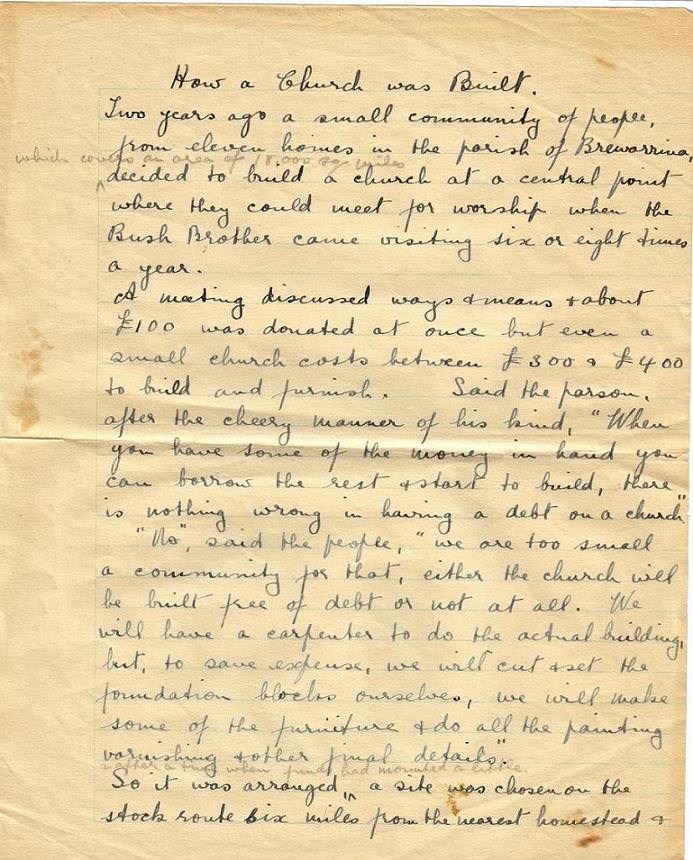 How a Church was Built.
Two years ago a small community of people,
from eleven homes in the parish of Brewarrina,
which covers an area of 18.000 sq. miles
decided to build a church at a central point
where they could meet for worship when the
Bush Brother came visiting six or eight times
a year.
A meeting discussed ways & means & about
£100 was donated at once but even a
small church costs between £300 & £400
to build and furnish. Said the parson,
after the cheery manner of his kind, "When
you have some of the money in hand you
can borrow the rest & start to build, there
is nothing wrong in having a debt on a church"
"No", said the people, "we are too small
a community for that, either the church will
be built free of debt or not at all. We
will have a carpenter to do the actual building,
but, to save expense, we will cut & set the
foundation blocks ourselves, we will make
some of the furniture & do all the painting
varnishing & other final details".
& after a time when funds had mounted a little.
So it was arranged, a site was chosen on the
stock route six miles from the nearest homestead &